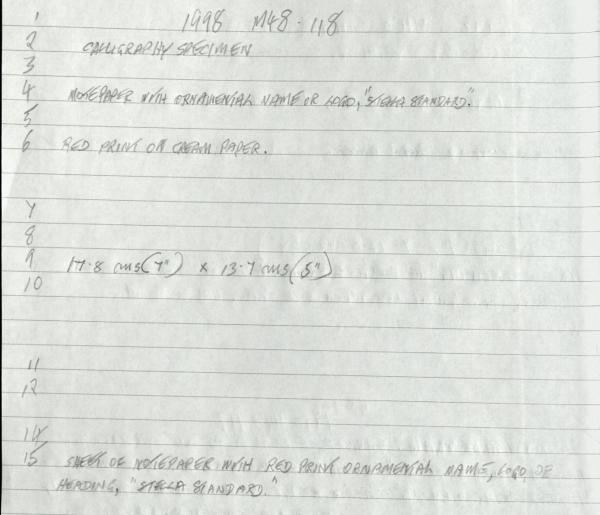 1998 M48.118
1
2 CALLIGRAPHY SPECIMEN
3
4 NOTEPAPER WITH ORNAMENTAL NAME OR LOGO, "STELLA STANDARD".
5
6 RED PRINT ON CREAM PAPER.
7
8
9 17.8 cms (7") x 13.7 cms (5")
10
11
12
14
15 SHEET OF NOTEPAPER WITH RED PRINT ORNAMENTAL NAME, LOGO, OR
HEADING, "STELLA STANDARD."